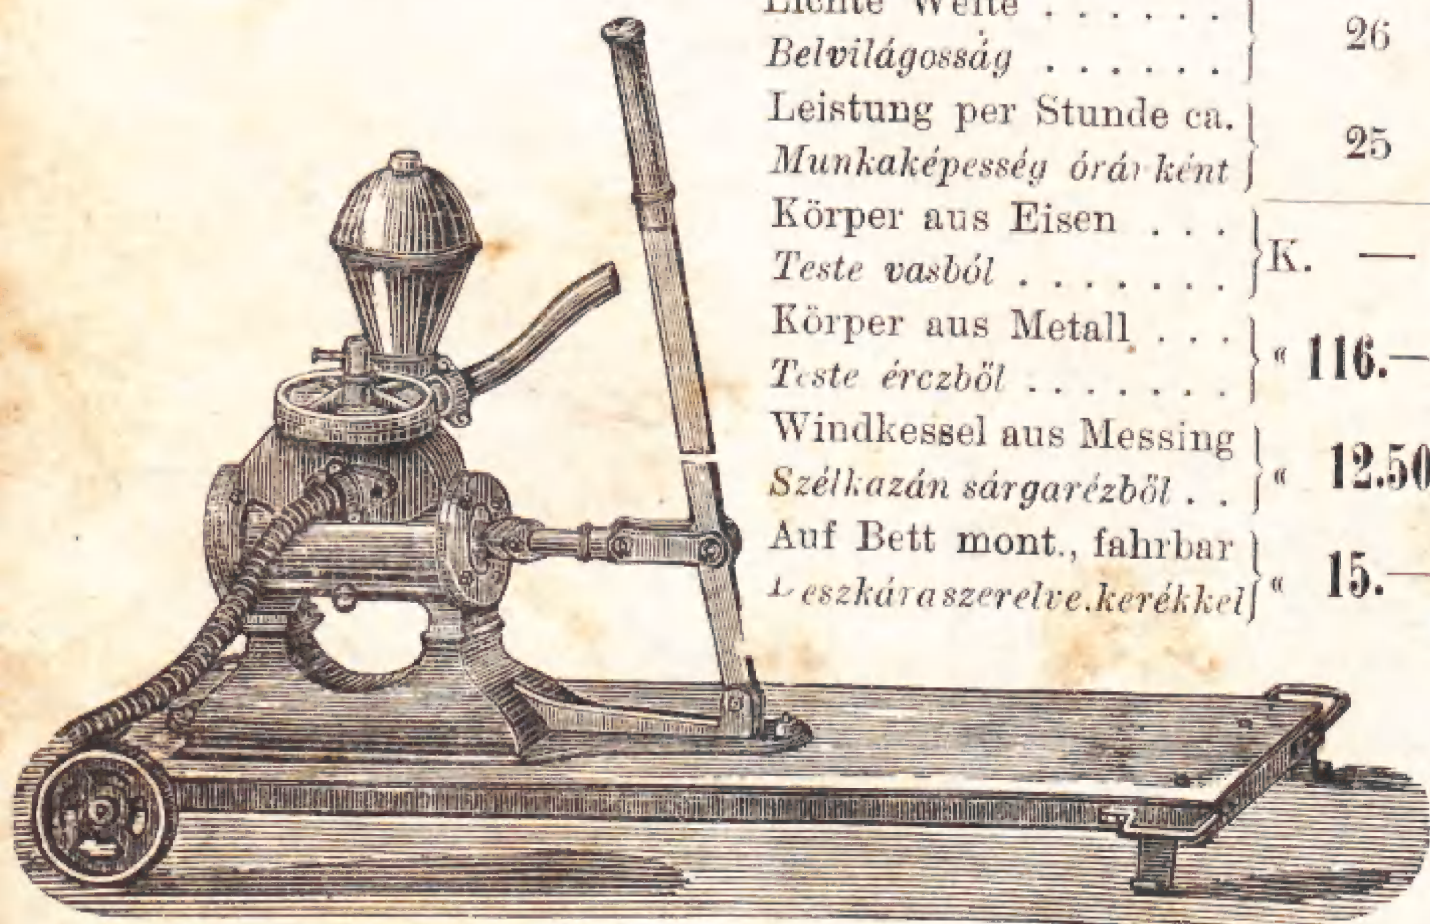 Lichte Weite . . . . . . 26
Belvilágosság . . . . . .
Leistung per Stunde ca. 25
Munkaképesség óránként
Körper aus Eisen . . . K. —
Teste vasból . . . . . . .
Körper aus Metall . . . « 116.—
Teste érczből . . . . . . .
Windkessel aus Messing « 12.50
Szélkazán sárgarézből . .
Auf Bett mont., fahrbar « 15.—
Deszkára szerelve.kerékkel